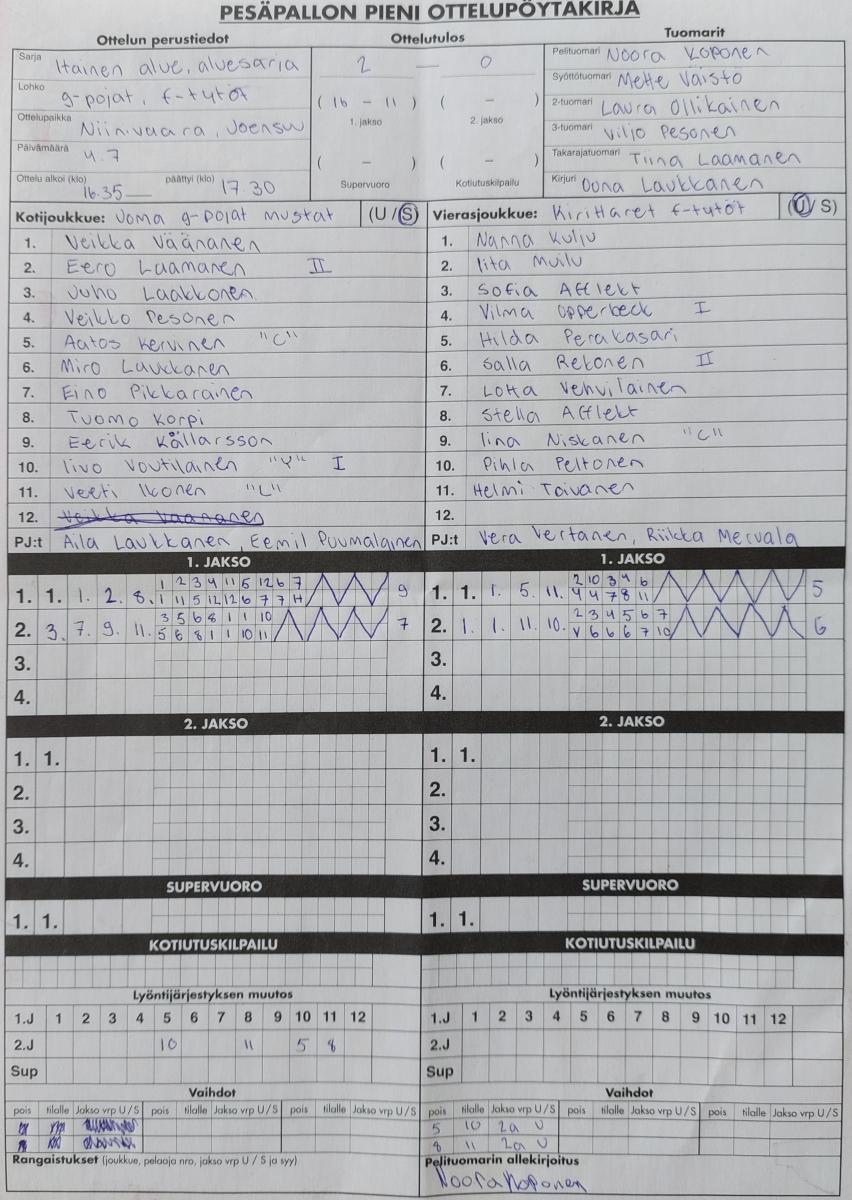 PESÄPALLON PIENI OTTELUPÖYTÄKIRJA
Ottelun perustiedot Ottelutulos Tuomarit
Sarja Itäinen alue, aluesarja
Lohko g-pojat, f-tytöt
Ottelupaikka Niinivaara, Joensuu
Päivämäärä 4.7
Ottelu alkoi (klo) 16.35 päättyi (klo) 17.30
2 — 0
( 16 - 11 ) ( - )
1. jakso 2. jakso
( - ) ( - )
Supervuoro Kotiutuskilpailu
Pelituomari Noora Koponen
Syöttötuomari Mette Väistö
2-tuomari Laura Ollikainen
3-tuomari Viljo Pesonen
Takarajatuomari Tiina Laamanen
Kirjuri Oona Laukkanen
Kotijoukkue: Joma g-pojat mustat (U / S)
1. Veikka Väänänen
2. Eero Laamanen II
3. Juho Laakkonen
4. Veikko Pesonen
5. Aatos Kervinen "C"
6. Miro Laukkanen
7. Eino Pikkarainen
8. Tuomo Korpi
9. Eerik Källarsson
10. Iivo Voutilainen "V" I
11. Veeti Ikonen "L"
12. Veikka Väänänen
PJ:t Aila Laukkanen, Eemil Puumalainen
Vierasjoukkue: Kirittäret f-tytöt (U / S)
1. Nanna Kulju
2. Iita Muilu
3. Sofia Afflekt
4. Vilma Opperbeck I
5. Hilda Peräkasari
6. Salla Rekonen II
7. Lotta Vehviläinen
8. Stella Afflekt
9. Iina Niskanen "C"
10. Pihla Peltonen
11. Helmi Toivanen
12.
PJ:t Vera Vertanen, Riikka Mervala
1. JAKSO
1. 1. 1. 2. 8. 1 2 3 4 11 5 12 6 7 9
1 11 5 12 12 6 7 7 H
2. 3. 7. 9. 11. 3 5 6 8 1 1 10 7
5 6 8 1 1 10 11
3.
4.
1. JAKSO
1. 1. 1. 5. 11. 2 10 3 4 6 5
4 4 7 8 11
2. 1. 1. 11. 10. 2 3 4 5 6 7 6
V 6 6 6 7 10
3.
4.
2. JAKSO
1. 1.
2.
3.
4.
2. JAKSO
1. 1.
2.
3.
4.
SUPERVUORO
1. 1.
SUPERVUORO
1. 1.
KOTIUTUSKILPAILU
KOTIUTUSKILPAILU
Lyöntijärjestyksen muutos
1.J 1 2 3 4 5 6 7 8 9 10 11 12
2.J 10 11 5 8
Sup
Lyöntijärjestyksen muutos
1.J 1 2 3 4 5 6 7 8 9 10 11 12
2.J
Sup
Vaihdot
pois tilalle Jakso vrp U / S pois tilalle Jakso vrp U / S pois tilalle Jakso vrp U / S
Vaihdot
pois tilalle Jakso vrp U / S pois tilalle Jakso vrp U / S pois tilalle Jakso vrp U / S
5 10 2a U
8 11 2a U
Rangaistukset (joukkue, pelaaja nro, jakso vrp U / S ja syy)
Pelituomarin allekirjoitus
Noora Koponen